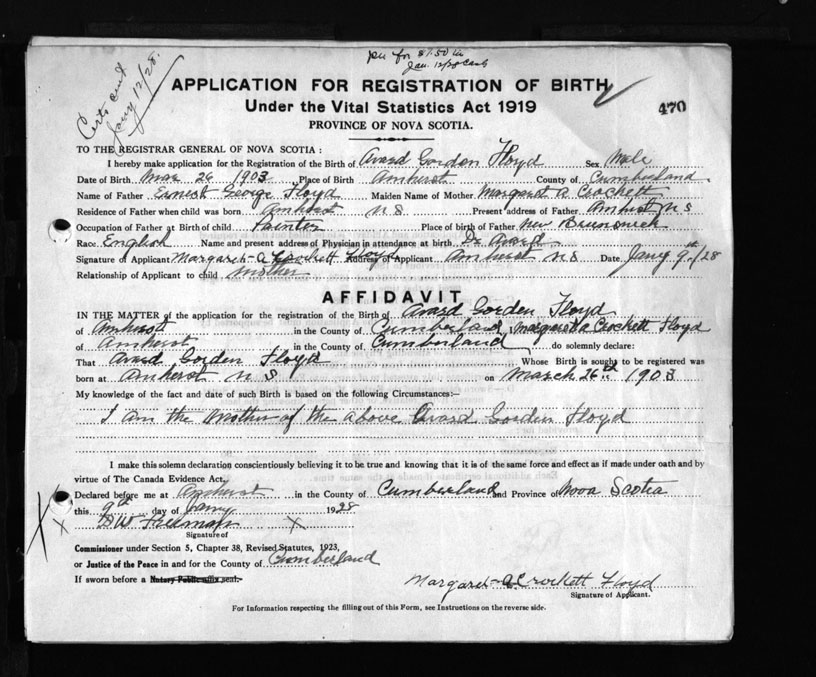 pd for $1.50 in
Jan. 12/28 Cash
Certs and
Jany 12/28.
APPLICATION FOR REGISTRATION OF BIRTH
470
Under the Vital Statistics Act 1919
PROVINCE OF NOVA SCOTIA.
TO THE REGISTRAR GENERAL OF NOVA SCOTIA :
I hereby make application for the Registration of the Birth of Avard Gorden Floyd Sex Male
Date of Birth Mar 26 1903 Place of Birth Amherst County of Cumberland
Name of Father Ernest George Floyd Maiden Name of Mother Margaret A Crockett
Residence of Father when child was born Amherst N S Present address of Father Amherst N S
Occupation of Father at Birth of child Painter Place of birth of Father New Brunswick
Race English Name and present address of Physician in attendance at birth Dr Avard
Signature of Applicant Margaret A Crockett Floyd Address of Applicant Amherst N S Date Jany 9th/28
Relationship of Applicant to child mother
AFFIDAVIT
IN THE MATTER of the application for the registration of the Birth of Avard Gorden Floyd
of Amherst in the County of Cumberland, Margaret A Crockett Floyd
of Amherst in the County of Cumberland do solemnly declare:
That Avard Gorden Floyd Whose Birth is sought to be registered was
born at Amherst N S on March 26th 1903
My knowledge of the fact and date of such Birth is based on the following Circumstances:—
I am the Mother of the above Avard Gorden Floyd
I make this solemn declaration conscientiously believing it to be true and knowing that it is of the same force and effect as if made under oath and by
virtue of The Canada Evidence Act.
Declared before me at Amherst in the County of Cumberland and Province of Nova Scotia
this 9th day of Jany 1928
D W Freeman X
Signature of
Commissioner under Section 5, Chapter 38, Revised Statutes, 1923,
or Justice of the Peace in and for the County of Cumberland
If sworn before a Notary Public affix seal.
Margaret A Crockett Floyd
Signature of Applicant.
For Information respecting the filling out of this Form, see Instructions on the reverse side.